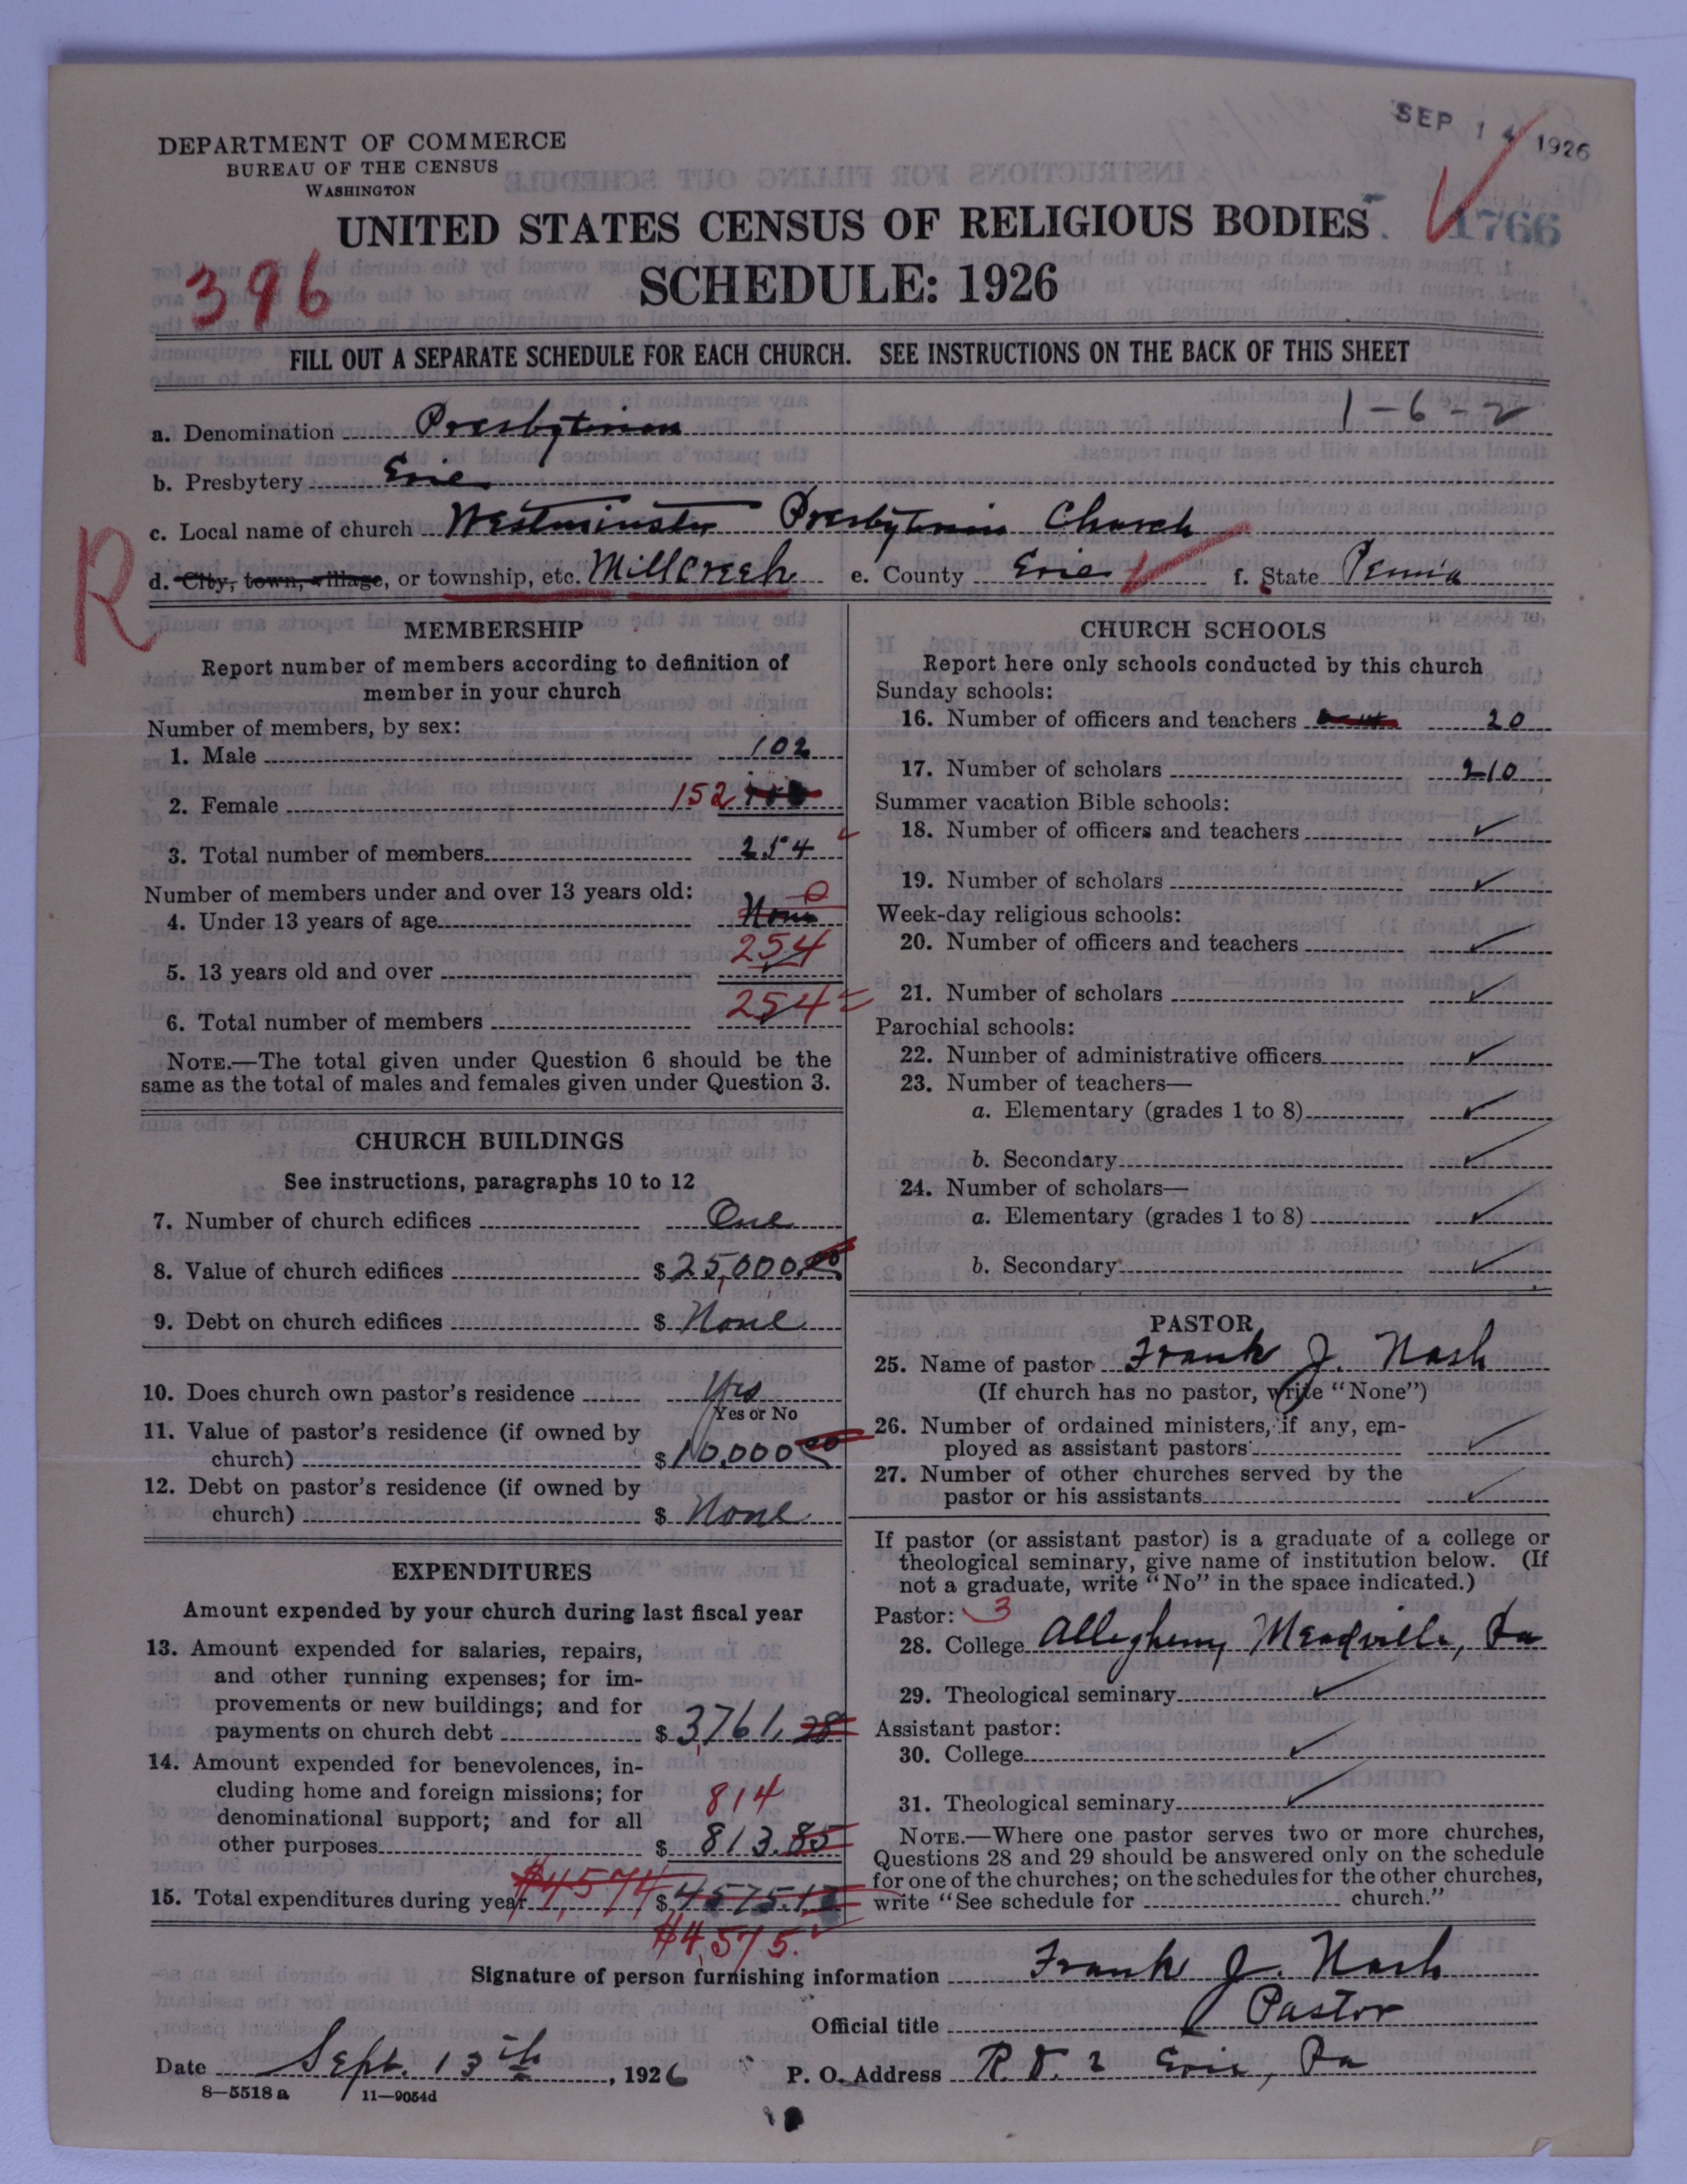 SEP 14 1926
DEPARTMENT OF COMMERCE
BUREAU OF THE CENSUS
WASHINGTON
UNITED STATES CENSUS OF RELIGIOUS BODIES
1766
396
SCHEDULE: 1926
FILL OUT A SEPARATE SCHEDULE FOR EACH CHURCH. SEE INSTRUCTIONS ON THE BACK OF THIS SHEET
1-6-2
a. Denomination Presbyterian
b. Presbytery Erie
c. Local name of church Westminster Presbyterian Church
R
d. City, town, village, or township, etc. Millcreek e. County Erie f. State Penn'a
MEMBERSHIP
Report number of members according to definition of
member in your church
Number of members, by sex:
1. Male 102
2. Female 152
3. Total number of members 254
Number of members under and over 13 years old:
4. Under 13 years of age None 0
5. 13 years old and over 254
6. Total number of members 254
NOTE.—The total given under Question 6 should be the
same as the total of males and females given under Question 3.
CHURCH BUILDINGS
See instructions, paragraphs 10 to 12
7. Number of church edifices One
8. Value of church edifices $ 25,000.00
9. Debt on church edifices $ None
10. Does church own pastor's residence Yes
Yes or No
11. Value of pastor's residence (if owned by
church) $ 10,000 00
12. Debt on pastor's residence (if owned by
church) $ None
EXPENDITURES
Amount expended by your church during last fiscal year
13. Amount expended for salaries, repairs,
and other running expenses; for im-
provements or new buildings; and for
payments on church debt $ 3761.28
14. Amount expended for benevolences, in-
cluding home and foreign missions; for
denominational support; and for all
814
other purposes $ 813.85
15. Total expenditures during year $4,574 $ 4575.13
$4,575.
CHURCH SCHOOLS
Report here only schools conducted by this church
Sunday schools:
16. Number of officers and teachers 20
17. Number of scholars 210
Summer vacation Bible schools:
18. Number of officers and teachers
19. Number of scholars
Week-day religious schools:
20. Number of officers and teachers
21. Number of scholars
Parochial schools:
22. Number of administrative officers
23. Number of teachers—
a. Elementary (grades 1 to 8)
b. Secondary
24. Number of scholars—
a. Elementary (grades 1 to 8)
b. Secondary
PASTOR
25. Name of pastor Frank J. Nash
(If church has no pastor, write "None")
26. Number of ordained ministers, if any, em-
ployed as assistant pastors
27. Number of other churches served by the
pastor or his assistants
If pastor (or assistant pastor) is a graduate of a college or
theological seminary, give name of institution below. (If
not a graduate, write "No" in the space indicated.)
Pastor: 3
28. College Allegheny, Meadville, Pa
29. Theological seminary
Assistant pastor:
30. College
31. Theological seminary
NOTE.—Where one pastor serves two or more churches,
Questions 28 and 29 should be answered only on the schedule
for one of the churches; on the schedules for the other churches,
write "See schedule for church."
Signature of person furnishing information Frank J. Nash
Official title Pastor
Date Sept. 13th, 1926 P. O. Address R.D. 2 Erie, Pa
8—5518 a 11—9054d